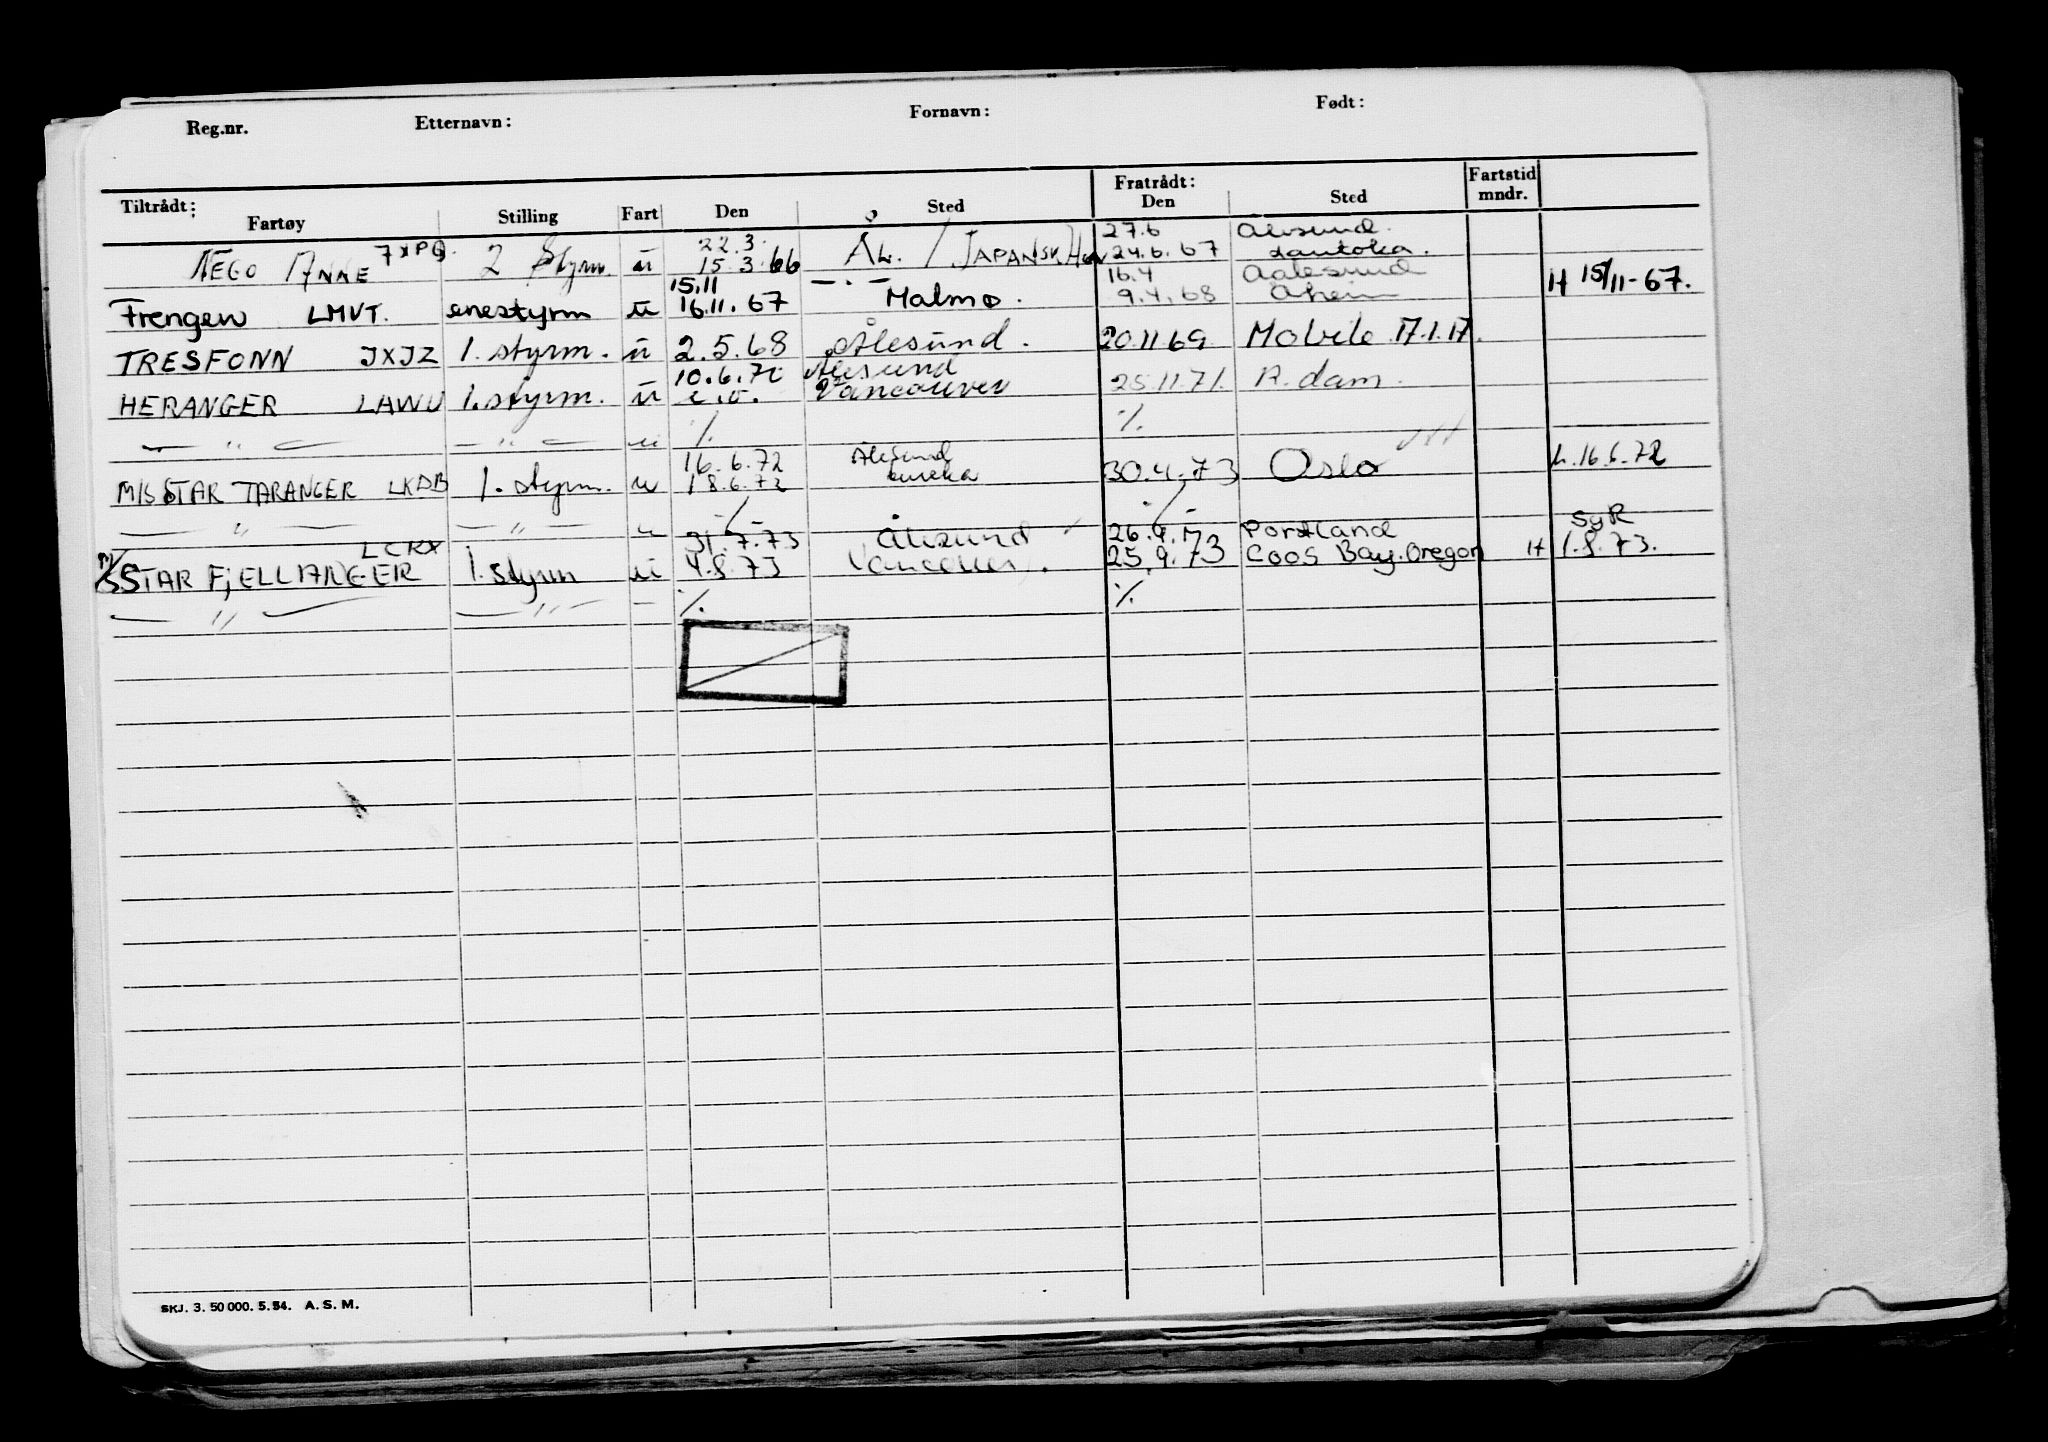 Reg.nr. Etternavn: Fornavn: Født:
Tiltrådt: Fratrådt: Fartstid
Fartøy Stilling Fart Den Sted Den Sted mndr.
22.3 27.6 Ålesund.
NEGO ANNE 7XPQ. 2 Styrm. u 15.3.66 ÅL. / JAPANSK Havn 24.6.67 Lautoka.
15.11 — . — 16.4 Aalesund
Frengen LMVT. enestyrm u 16.11.67 Malmø. 9.4.68 Åheim H 15/11-67.
TRESFONN JXJZ 1. styrm. u 2.5.68 Ålesund. 20.11 69 Mobile 17.1.17.
10.6.70 Ålesund
HERANGER LAWU 1. styrm. u Vancouver 25.11.71. R.dam.
— " — — " — u % %
16.6.72 Ålesund
M/S STAR TARANGER LKDB 1. styrm. u 18.6.72 Eureka 30.4.73 Oslo h. 16.6.72
— " — — " — u % %
LCKX 31.7.73 Ålesund 26.9.73 Portland SyR
M/S STAR FJELLANGER 1. styrm u 4.8.73 Vancouver. 25.9.73 Coos Bay. Oregon H 1.8.73.
— " — — " — — % %
SKJ. 3. 50 000. 5. 54. A. S. M.